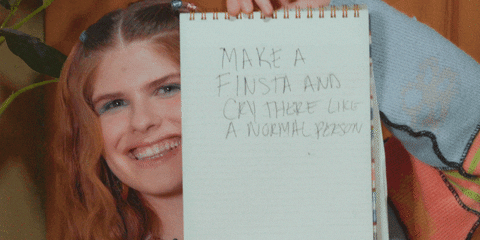 MAKE A
FINSTA AND
CRY THERE LIKE
A NORMAL PERSON